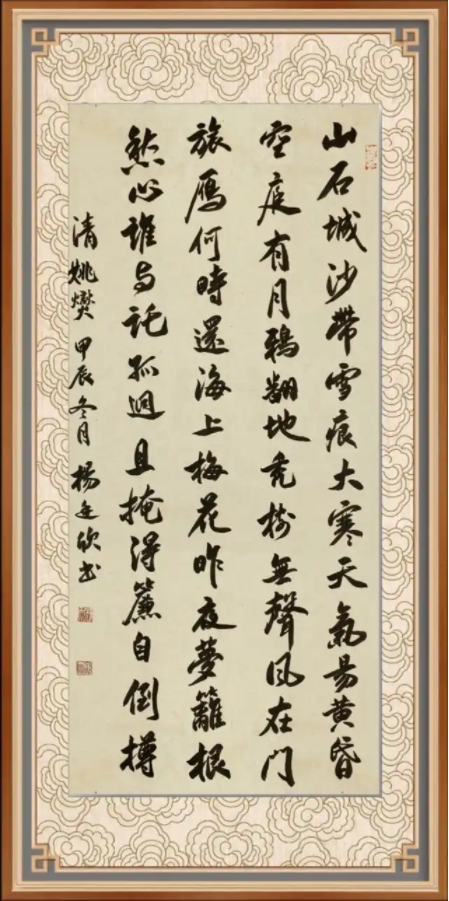 山石城沙帶雪痕大寒天氣易黃昏
空庭有月鴉翻地禿樹無聲風在門
旅鴈何時還海上梅花昨夜夢籬根
愁心誰与託孤迥且掩簾自倒樽
清姚燮 甲辰冬月 楊廷欣書